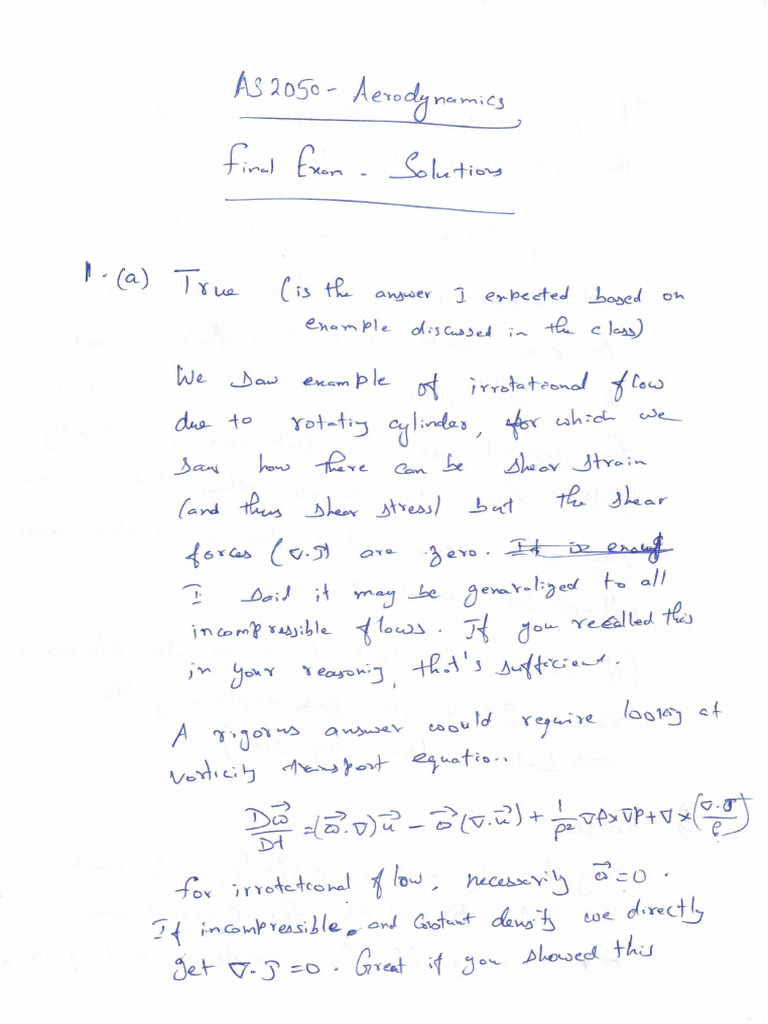 AS2050 - Aerodynamics
Final Exam - Solutions
1. (a) True (is the answer I expected based on
example discussed in the class)
We saw example of irrotational flow
due to rotating cylinder, for which we
saw how there can be shear strain
(and thus shear stress) but the shear
forces (∇.J) are zero. It is enough
I said it may be genaralized to all
incompressible flows. If you recalled this
in your reasoning, that's sufficient.
A rigorus answer would require looking at
vorticity transport equation.
Dω⃗/Dt = (ω⃗.∇)u⃗ - ω⃗(∇.u⃗) + 1/ρ² ∇ρ×∇P + ∇×(∇.σ/ρ)
for irrotational flow, necessarily ω⃗=0.
If incompressible, and constant density we directly
get ∇.J=0. Great if you showed this